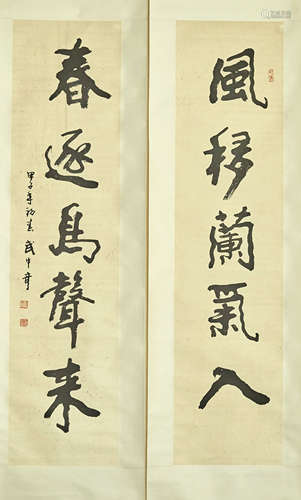 風移蘭氣入
春逐鳥聲來
甲子年初春 武中奇